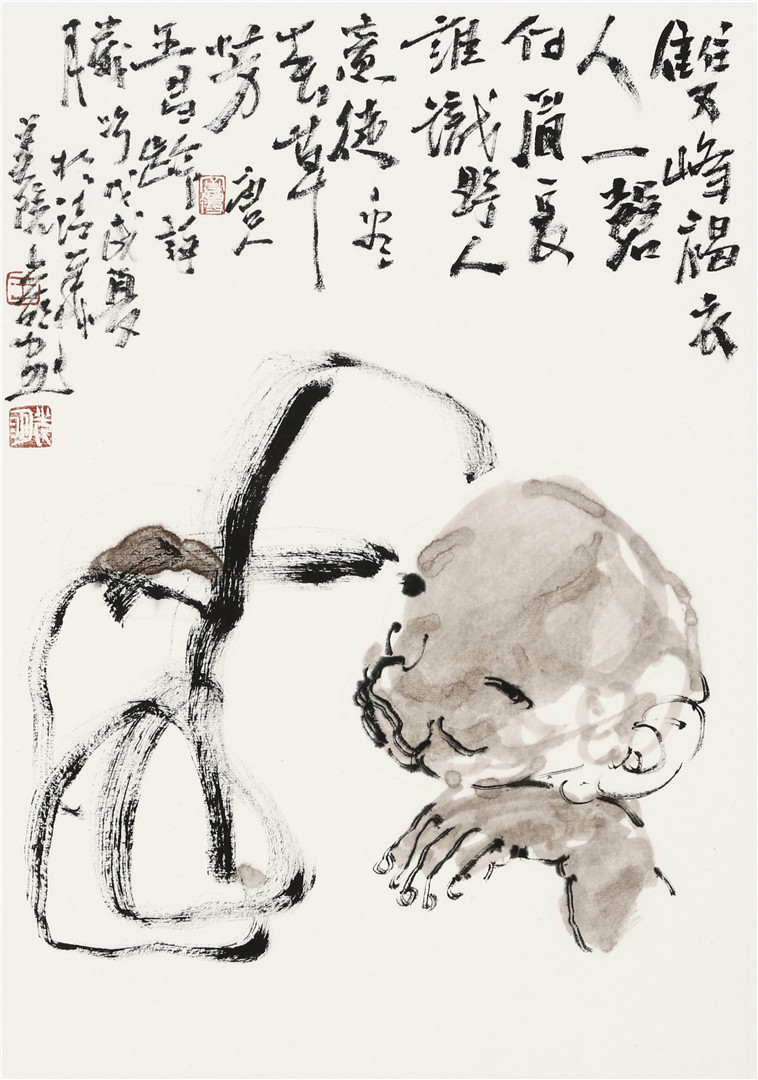 雙峰褐衣
久一磬
白眉長
誰識野人
意徒看
春草
芳 唐人
王昌齡詩
戊戌夏
於清華
畫